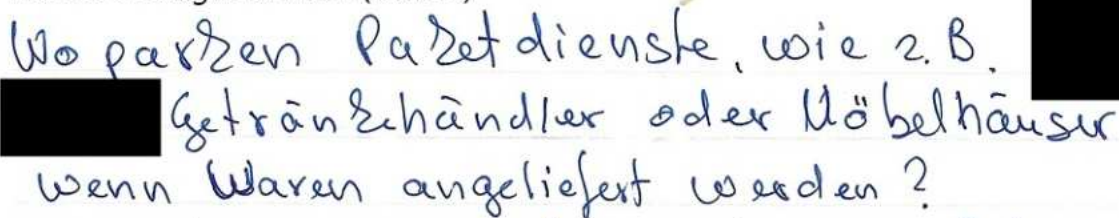 Wo parken Paketdienste, wie z.B.
Getränkehändler oder Möbelhäuser
wenn Waren angeliefert werden?